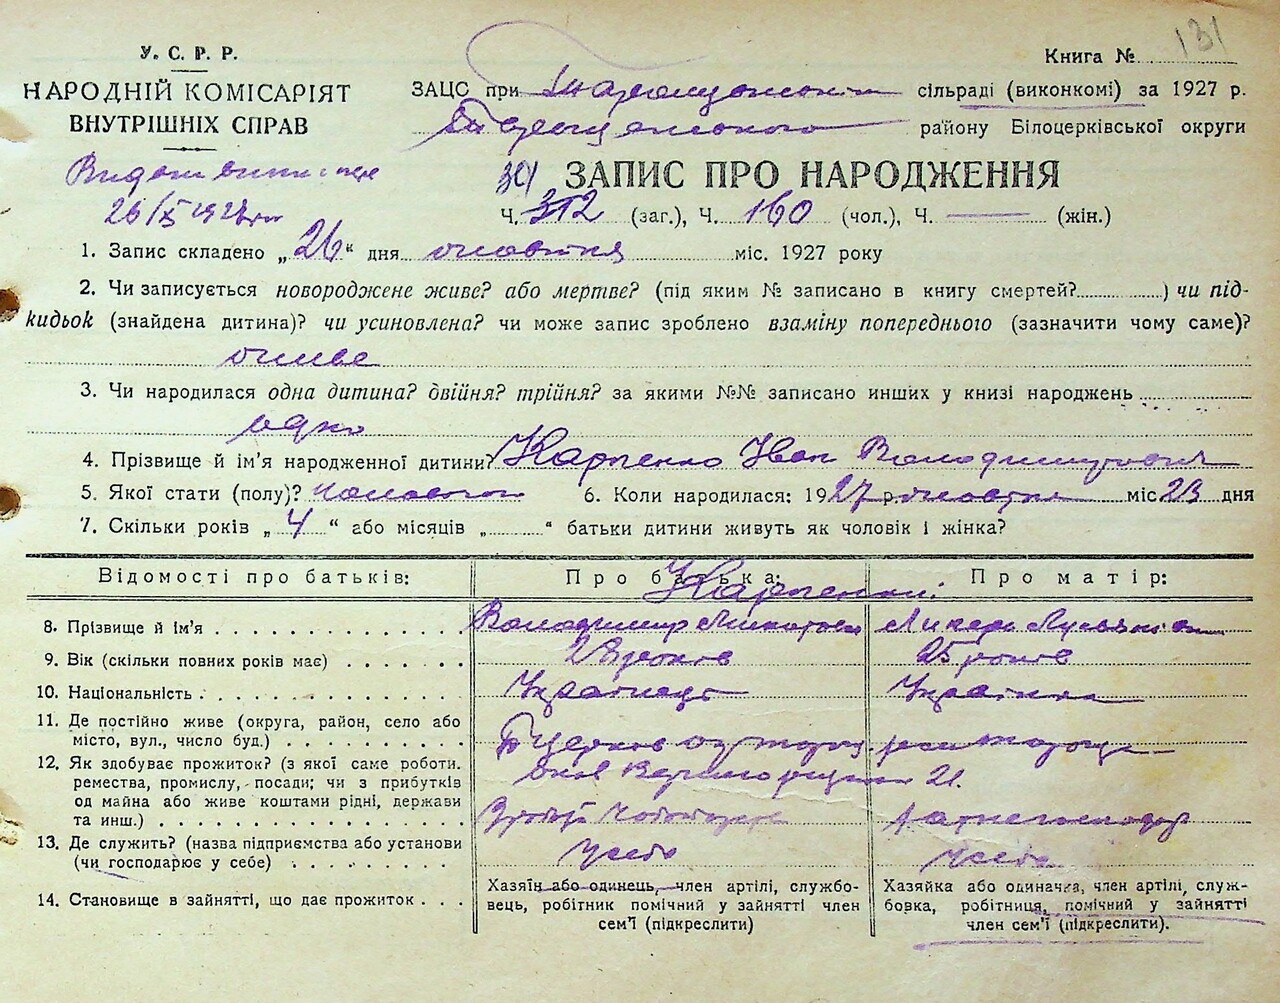 131
У. С. Р. Р.
НАРОДНІЙ КОМІСАРІЯТ
ВНУТРІШНІХ СПРАВ
Книга №
ЗАЦС при сільраді (виконкомі) за 1927 р.
району Білоцерківської округи
26/X 1927
301 ЗАПИС ПРО НАРОДЖЕННЯ
Ч. 312 (заг.), Ч. 160 (чол.), Ч. — (жін.)
1. Запис складено „26“ дня жовтня міс. 1927 року
2. Чи записується новороджене живе? або мертве? (під яким № записано в книгу смертей? ) чи під-
кидьок (знайдена дитина)? чи усиновлена? чи може запис зроблено взаміну попереднього (зазначити чому саме)?
живе
3. Чи народилася одна дитина? двійня? трійня? за якими №№ записано инших у книзі народжень
одно
4. Прізвище й ім'я народженної дитини? Карпенко Іван Володимирович
5. Якої стати (полу)? чоловочої 6. Коли народилася: 1927 р. жовтня міс 23 дня
7. Скільки років „4“ або місяців „ “ батьки дитини живуть як чоловік і жінка?
Відомості про батьків: Про батька: Про матір:
Карпенки
8. Прізвище й ім'я Володимир
9. Вік (скільки повних років має) 28 років 25 років
10. Національність Українець Українка
11. Де постійно живе (округа, район, село або
місто, вул., число буд.)
21.
12. Як здобуває прожиток? (з якої саме роботи.
ремества, промислу, посади; чи з прибутків
од майна або живе коштами рідні, держави
та инш.)
13. Де служить? (назва підприємства або установи
(чи господарює у себе) У себе У себе
14. Становище в зайнятті, що дає прожиток
Хазяїн або одинець, член артілі, службо-
вець, робітник помічний у зайнятті член
сем'ї (підкреслити)
Хазяйка або одиначка, член артілі, служ-
бовка, робітниця, помічний у зайнятті
член сем'ї (підкреслити).